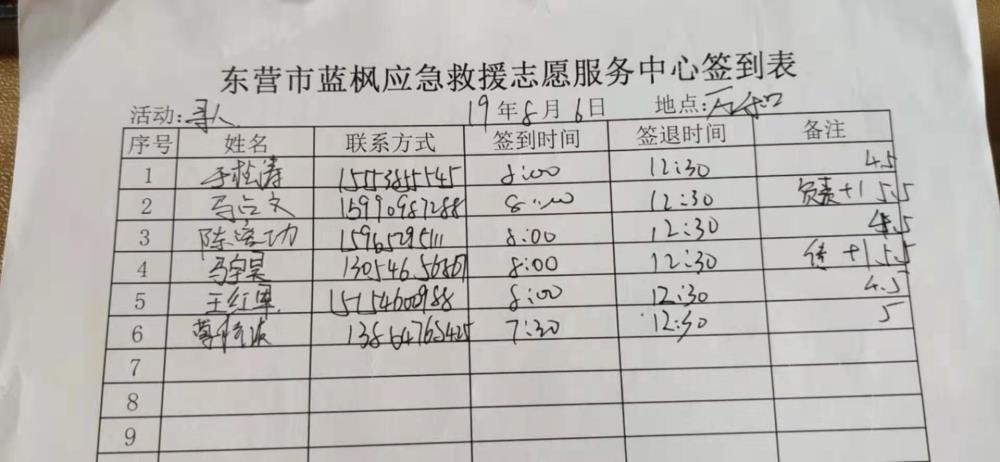 东营市蓝枫应急救援志愿服务中心签到表
活动:寻人 19年8月6日 地点:
序号 姓名 联系方式 签到时间 签退时间 备注
1 15553855545 8:00 12:30 4.5
2 马占文 15990987288 8:00 12:30 负责+1 5.5
3 陈 功 15965295111 8:00 12:30 4.5
4 马宇昊 8:00 12:30 +1 5.5
5 王红军 15154600988 8:00 12:30 4.5
6 7:30 12:30 5
7
8
9